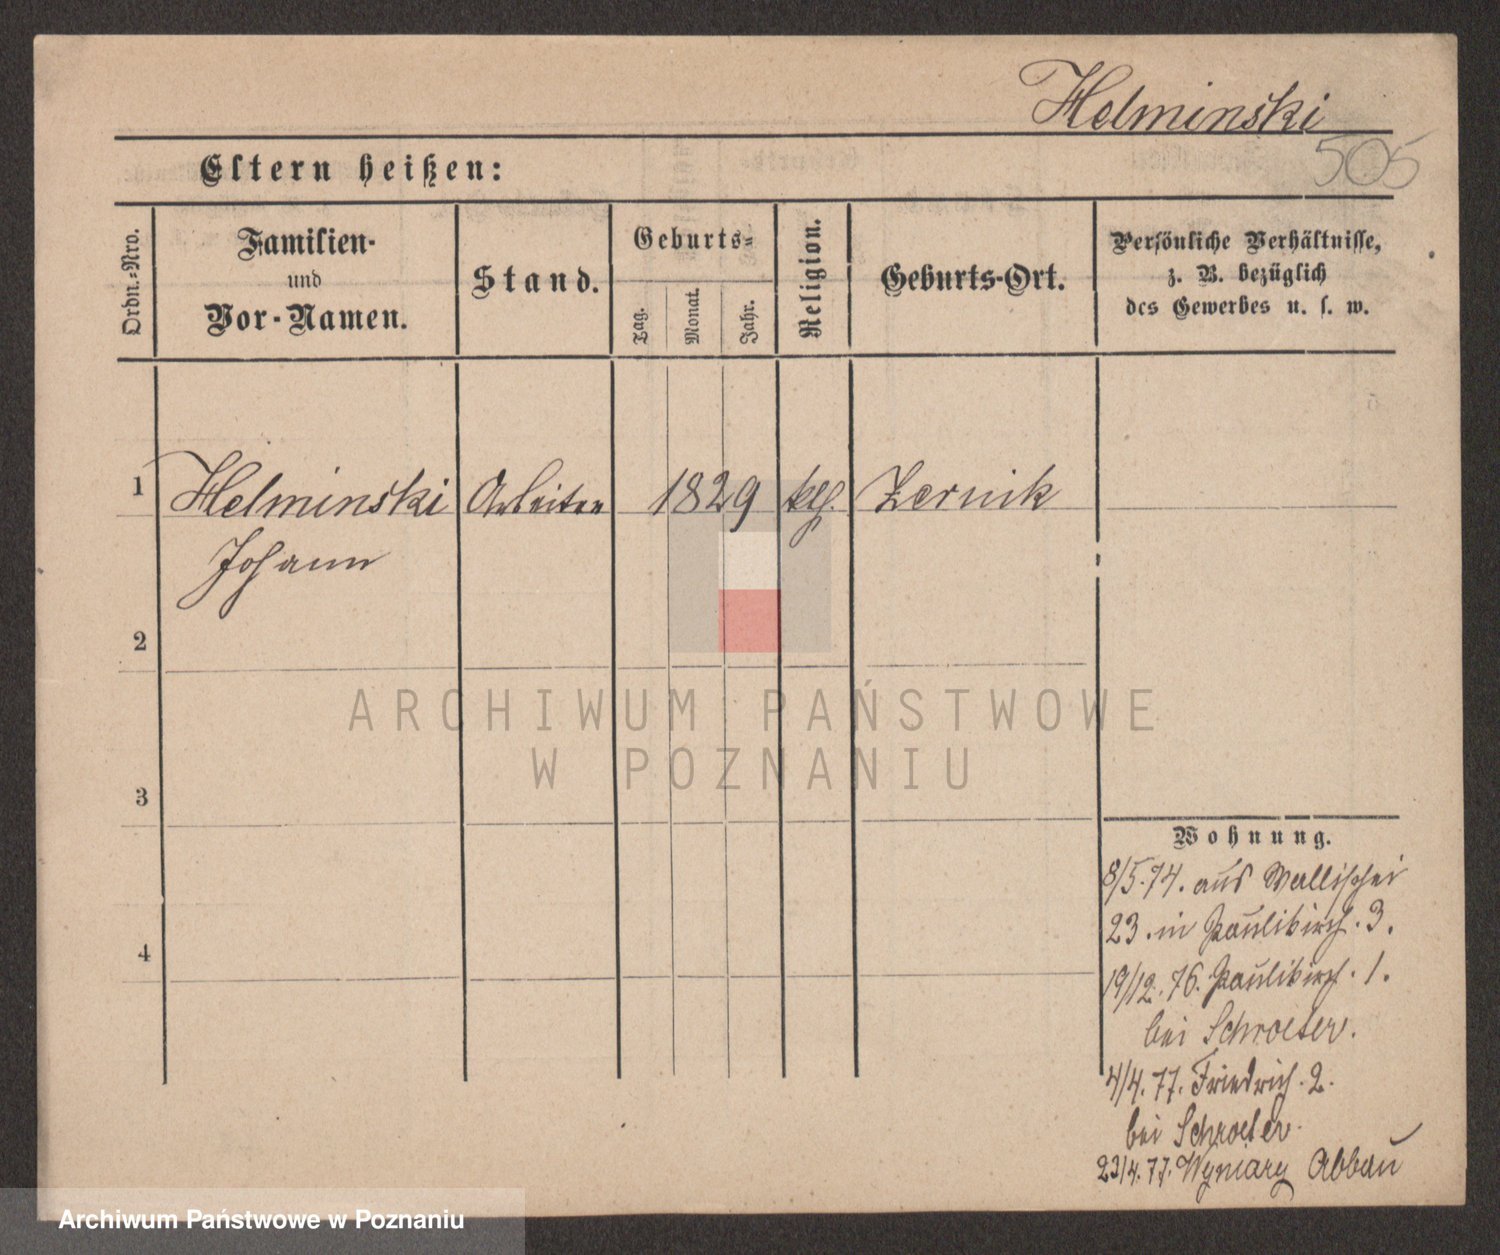 Helminski
505
Eltern heißen:
Ordn.-Nro.
Familien-
und
Vor-Namen.
Stand.
Geburts-
Tag.
Monat.
Jahr.
Religion.
Geburts-Ort.
Persönliche Verhältnisse,
z. B. bezüglich
des Gewerbes u. s. w.
1 Helminski Arbeiter 1829 kth. Zernik
Johann
2
3
4
Wohnung.
8/5.74. aus Wallischei
23. in Paulikirch. 3.
19/12. 76. Paulikirch. 1.
bei Schroeter.
4/4. 77. Friedrich. 2.
bei Schroeter.
23/4. 77. Abbau
ARCHIWUM PAŃSTWOWE
W POZNANIU
Archiwum Państwowe w Poznaniu